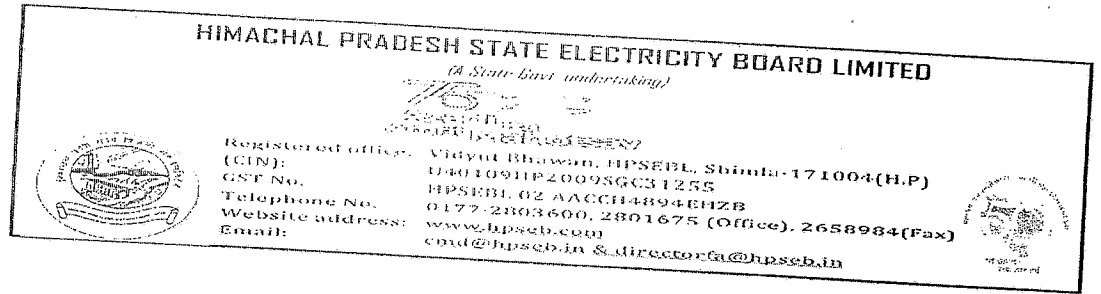 HIMACHAL PRADESH STATE ELECTRICITY BOARD LIMITED
(A State Govt undertaking)
Registered office: Vidyut Bhawan, HPSEBL, Shimla-171004(H.P)
(CIN): U40109HP2009SGC31255
GST No. HPSEBL 02 AACCH4894EHZB
Telephone No. 0177-2803600, 2801675 (Office), 2658984(Fax)
Website address: www.hpseb.com
Email: cmd@hpseb.in & directorfa@hpseb.in